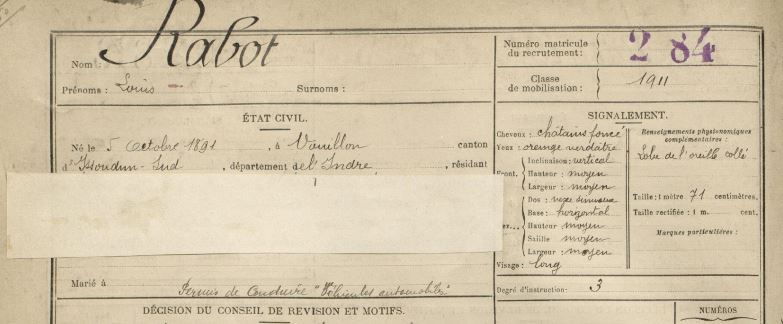 Nom : Rabot
Prénoms : Louis Surnoms :
Numéro matricule
du recrutement :
284
Classe
de mobilisation :
1911
ÉTAT CIVIL.
Né le 5 octobre 1891, à Vouillon canton
d'Issoudun-Sud, département de l'Indre, résidant
Marié à
Permis de Conduire "Véhicules automobiles"
DÉCISION DU CONSEIL DE REVISION ET MOTIFS.
SIGNALEMENT.
Cheveux : châtains foncé
Yeux : orange verdâtre
Front.
Inclinaison : vertical
Hauteur : moyen
Largeur : moyen
Dos :
Base : horizontal
Hauteur moyen
Saillie moyen
Largeur : moyen
Visage : long
Renseignements physionomiques
complémentaires :
Lobe de l'oreille collé
Taille : 1 mètre 71 centimètres.
Taille rectifiée : 1 m. cent.
Marques particulières :
Degré d'instruction : 3
NUMÉROS